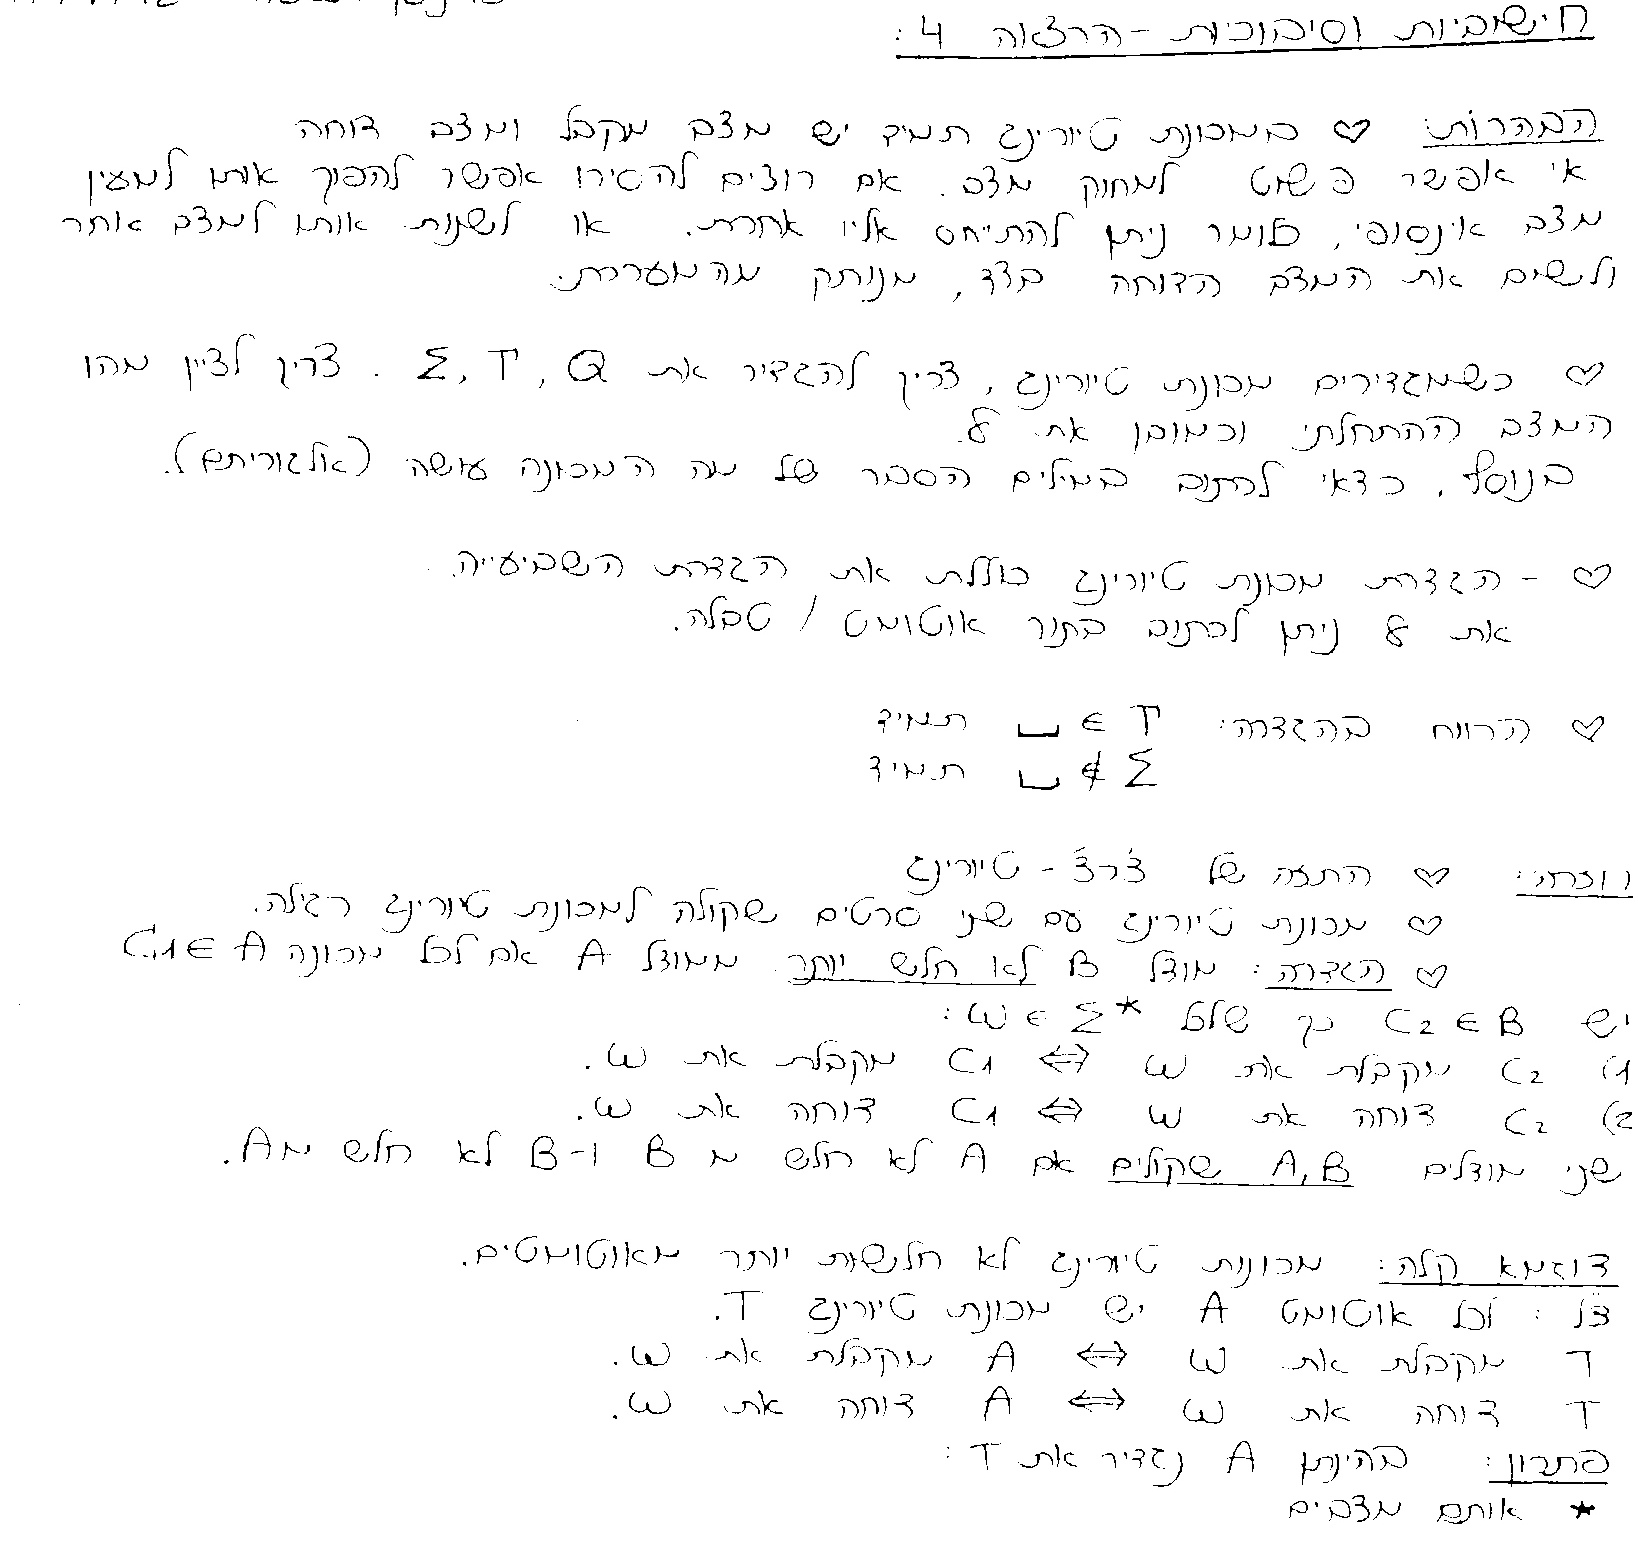 חישוביות וסיבוכיות - הרצאה 4:
הבהרות: ♡ במכונת טיורינג תמיד יש מצב מקבל ומצב דוחה
אי אפשר פשוט למחוק מצב. אם רוצים להסירו אפשר להפוך אותו למעין
מצב אינסופי, כלומר ניתן להתייחס אליו אחרת. או לשנות אותו למצב אחר
ולשים את המצב הדוחה בצד, מנותק מהמערכת.
♡ כשמגדירים מכונת טיורינג, צריך להגדיר את Σ, Γ, Q. צריך לציין מהו
המצב ההתחלתי וכמובן את δ.
בנוסף, כדאי לכתוב במילים הסבר של מה המכונה עושה (אלגוריתם).
♡ - הגדרת מכונת טיורינג כוללת את הגדרת השביעייה.
את δ ניתן לכתוב בתור אוטומט / טבלה.
♡ הרווח בהגדרה: ⌴ ∈ Γ תמיד
⌴ ∉ Σ תמיד
♡ התזה של צ'רצ' - טיורינג
♡ מכונת טיורינג עם שני סרטים שקולה למכונת טיורינג רגילה.
♡ הגדרה: מודל B לא חלש יותר ממודל A אם לכל מכונה C1 ∈ A
יש C2 ∈ B כך שלכל ω ∈ Σ*:
1) C2 מקבלת את ω ⇔ C1 מקבלת את ω.
2) C2 דוחה את ω ⇔ C1 דוחה את ω.
שני מודלים A,B שקולים אם A לא חלש מ B ו-B לא חלש מA.
דוגמא קלה: מכונות טיורינג לא חלשות יותר מאוטומטים.
צ"ל: לכל אוטומט A יש מכונת טיורינג T.
T מקבלת את ω ⇔ A מקבלת את ω.
T דוחה את ω ⇔ A דוחה את ω.
פתרון: בהינתן A נגדיר את T:
* אותם מצבים